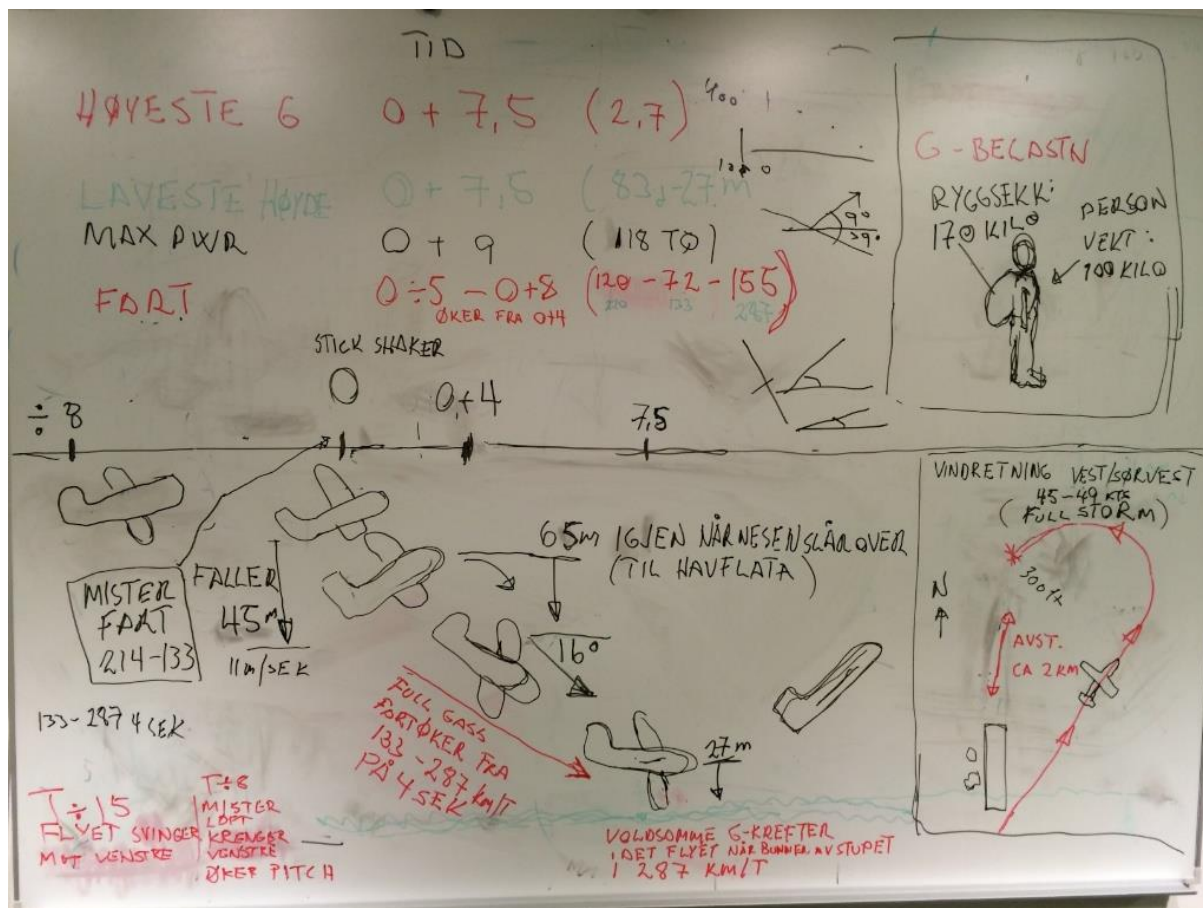 TID
HØYESTE G 0 + 7,5 (2,7)
LAVESTE HØYDE 0 + 7,5 (83,-27m
MAX PWR 0 + 9 (118 TQ)
FART 0÷5 - 0+8 (120 - 72 - 155)
ØKER FRA 0+4 220 133 287
400
9°
39°
G - BELASTN
RYGGSEKK:
170 KILO
PERSON
VEKT:
100 KILO
STICK SHAKER
÷ 8 0 0+4 7,5
MISTER
FART
214-133
FALLER
45m
11m/SEK
65m IGJEN NÅR NESEN SLÅR OVER
(TIL HAVFLATA)
16°
FULL GASS
FART ØKER FRA
133 - 287 KM/T
PÅ 4 SEK
27m
133-287 4 SEK
T ÷ 15
FLYET SVINGER
MOT VENSTRE
T÷8
MISTER
LØFT
KRENGER
VENSTRE
ØKER PITCH
VOLDSOMME G-KREFTER
I DET FLYET NÅR BUNNEN AV STUPET
I 287 KM/T
VINDRETNING VEST/SØRVEST
45-49 KTS
(FULL STORM)
300 ft
N
AVST.
CA 2 KM